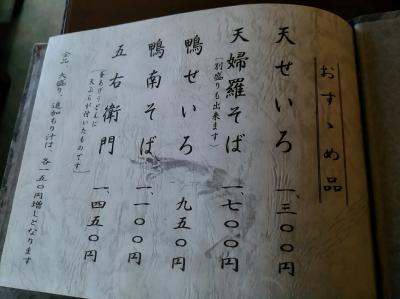 おすゝめ品
天せいろ 一、三〇〇円
天婦羅そば 一、七〇〇円
(別盛りも出来ます)
鴨せいろ 九五〇円
鴨南そば 一、一〇〇円
五右衛門 一、四五〇円
(釜あげうどんに
天ぷらが付いたものです)
全品 大盛り、追加もり汁は、各一五〇円増しとなります